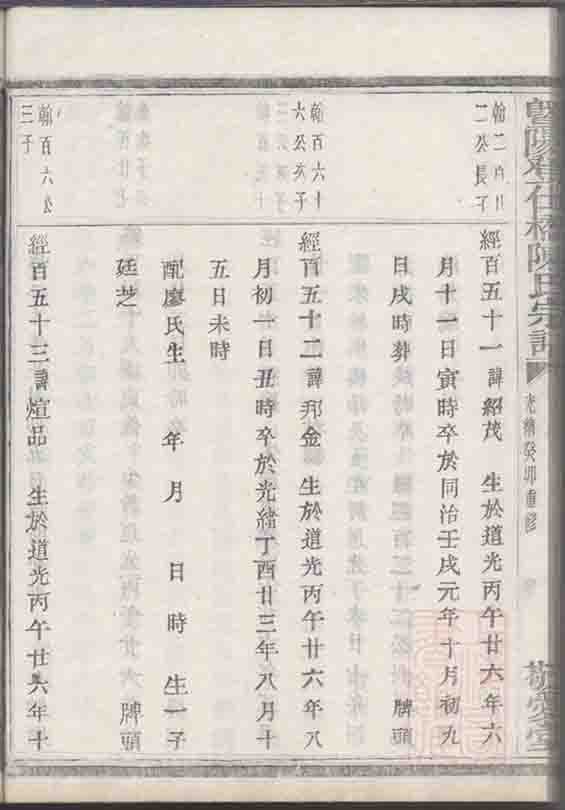 暨陽?石橋陳氏宗譜
光緒癸卯重修
敬愛堂
翰二百廿
二公長子
經百五十一諱紹茂 生於道光丙午廿六年六
月十一日寅時卒於同治壬戌元年十月初九
日戌時葬 牌頭
翰百六十
六公次子
經百五十二諱邦金 生於道光丙午廿六年八
月初一日丑時卒於光緒丁酉廿三年八月十
五日未時
配廖氏生 年 月 日 時 生一子
廷芝 牌頭
翰百六公
三子
經百五十三諱煊品 生於道光丙午廿六年十